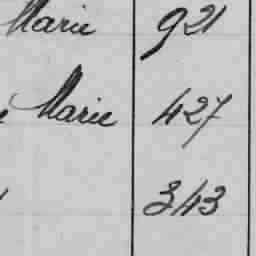 Marie 921
Marie 427
343